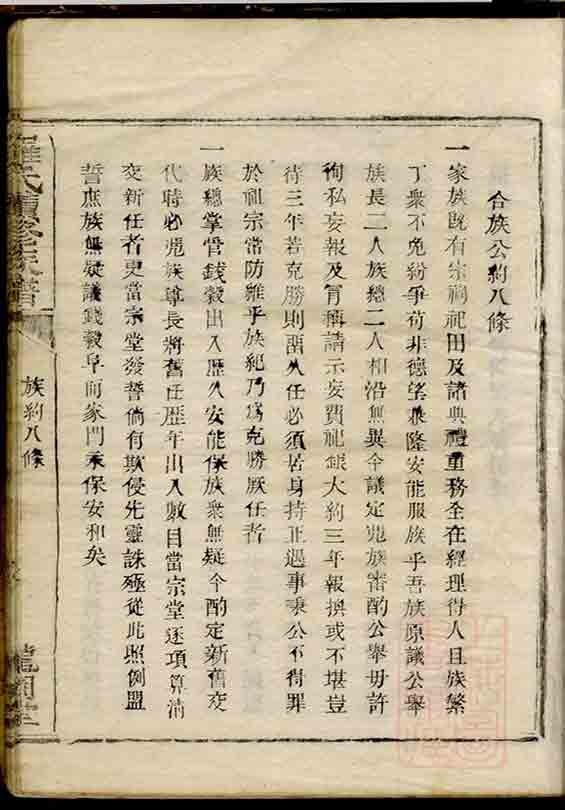 合族公約八條
一家族既有宗祠祀田及諸典禮重務全在經理得人且族繁
丁衆不免紛爭苟非德望兼隆安能服族乎吾族原議公舉
族長二人族總二人相沿無異今議定嵬族審酌公舉毋許
徇私妄報及冐稱請示妄費祀銀大約三年報換或不堪豈
待三年若克勝則畱久任必須居身持正遇事秉公不得罪
於祖宗常防維乎族紀乃爲克勝厥任者
一族總掌管錢穀出入歷久安能保族衆無疑今酌定新舊交
代時必嵬族尊長將舊任歷年出入數目當宗堂逐項算清
交新任者更當宗堂發誓倘有欺侵先靈誅殛從此照例盟
誓庶族無疑議錢穀阜而家門永保安和矣
羅氏續修族譜
族約八條